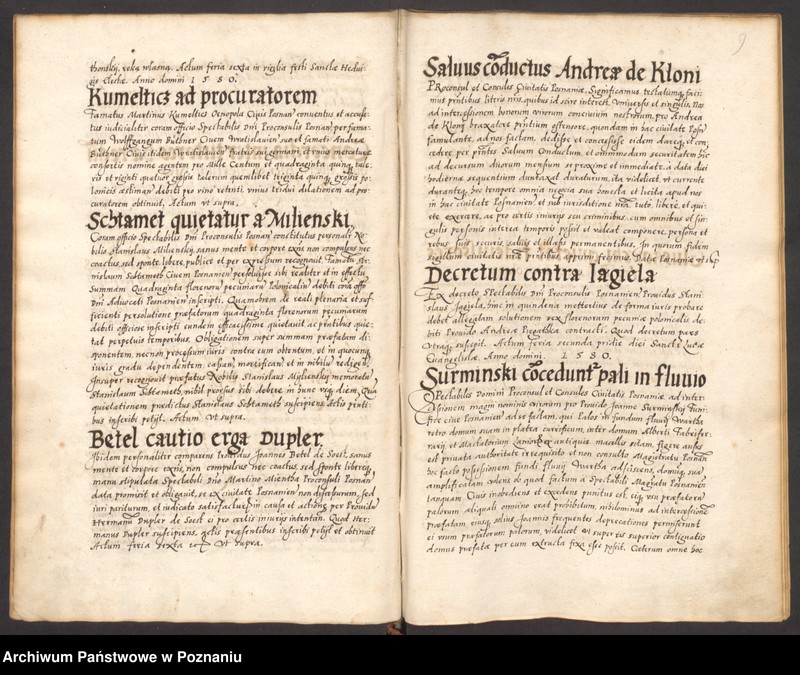 thonskÿ, ręką własną. Actum feria sexta in vigilia festi Sanctæ Hedui-
gis Electæ. Anno domini 1580.
Kumeltics ad procuratorem
Famatus Martinus Kumeltics Oenopola Ciuis Posnan conuentus et accusa-
tus iudicialiter coram officio Spectabilis Dni Proconsulis Posnan per fama-
tum Wolffgangum Büthner Ciuem Vratislauien suo et famati Andreæ
Büthner Ciuis itidem Vratislauien fratris sui germani, et vnius mercaturæ
consortis nomine agentem pro Mille Centum et quadraginta quinq, tale-
ris et viginti quatuor grossis talerum quemlibet triginta quinq, grossis po-
lonicis æstiman debiti pro vino retenti, vnius tridui dilationem ad pro-
curatorem obtinuit, Actum vt supra.
Schtamet quietatur a Milienski
Coram officio Spectabilis Dni Proconsulis Posnan constitutus personalr No-
bilis Stanislaus Milienskÿ, sanus mente et corpore exns non compulsus nec
coactus, sed sponte, libere, publice et per expressum recognouit, Famatū Sta-
nislaum Schtameth Ciuem Posnanien persoluisse sibi realiter et in effectu
Summam Quadraginta florenorū pecuniarū Polonicaliū debiti corā offo
Dni Aduocati Posnanien inscripti. Quamobrem de reali plenaria et suf-
ficienti persolutione præfatorum quadraginta florenorum pecuniarum
debiti officiose inscripti eundem efficacissime quietauit, ac prntibus quie-
tat perpetuis temporibus. Obligationem super summam præfatam di-
sponentem, nec non processum iuris contra eum obtentum, et in quocunq,
iuris gradu dependentem cassan, mortifican, et in nihilū redigen.
Insuper recognouit præfatus Nobilis Stanislaus Mylienskÿ memoratū
Stanislaum Schtameth, nihil prorsus sibi debere in hunc vsq, diem, Quā
quietationem prædictus Stanislaus Schtameth suscipiens, Actis prnti-
bus inscribi petijt. Actum vt supra.
Betel cautio erga Dupler
Ibidem personaliter comparens Prouidus Joannes Betel de Soest, sanus
mente et corpore exns, non compulsus nec coactus, sed sponte libereq,
manu stipulata Spectabili Dno Martino Mientha Proconsuli Posnan
data promisit et obligauit, se ex ciuitate Posnanien non discessurum, sed
iuri pariturum, et iudicato satisfacturū in causa et actione, per Prouidū
Hermanū Dupler de Soest ei pro certis iniurijs intentan. Quod Her-
manus Dupler suscipiens, actis præsentibus inscribi petijt et obtinuit
Actum feria sexta vt supra.
9
Saluus cōductus Andreæ de Kloni
PRoconsul et Consules Ciuitatis Posnaniæ, Significamus, testatumq, faci-
mus prntibus litris nris, quibus id scire interest, Vniuersis et singulis, Nos
ad intercessionem bonorum virorum concinium nostrorum, pro Andrea
de Kloni braxatore prntium ostensore, quondam in hac ciuitate Posñ
famulante, ad nos factam, dedisse et concessisse eidem dareq, et con-
cedere per prntes Saluum Conductum, et omnimodam securitatem hic
ad decursum duorum mensium se proxime et immediate, à data diei
hodierna sequentium duntaxat duraturum, ita videlicet, vt currente
duranteq, hoc tempore omnia negocia sua honesta et licita apud nos
in hac ciuitate Posnanien, et sub iurisditione nrā, tuto, libere, et qui-
ete exercere, ac pro certis iniurijs seu criminibus, cum omnibus et sin-
gulis personis interea temporis possit et valeat componere, persona et
rebus suis securis, saluis et illæsis permanentibus, In quorum fidem
sigillum ciuitatis nræ prntibus appimi fecimus. Datæ Posnaniæ vt sup
Decretum contra Iagiela
EX decreto Spectabilis Dni Proconsulis Posnanien, Prouidus Stani-
slaus Jagiela, hinc in quindena metterline de forma iuris probare
debet allegatam solutionem sex florenorum pecuniæ polonicalis de-
biti Prouido Andreæ Pregatka contracti, Quod decretum pars
vtraq, suscepit. Actum feria secunda pridie diei Sanctæ Lucæ
Euangelistæ. Anno domini. 1580.
Surminski cōcedunt pali in fluuio
SPectabiles Domini Proconsul et Consules Ciuitatis Posnaniæ ad inter-
cessionem magni nominis virorum pro Prouido Joanne Surminskÿ Funi-
fice ciue Posnanien ad se factam, qui Palos in fundum fluuij Wartha
retro domum suam in platea carnificum, inter domum Alberti Fabri fer-
rarij, et Machatorium Laniorū ex antiquis macellis solam, figere ausus
est priuata authoritate irrequisito et non consulto Magistratu Posnan
hoc facto possessionem fundi fluuij Wartha adsciscens, domūq, suā
amplificatam volens, ob quod factum a Spectabili Magratu Posnanien
tanquam Ciuis inobediens et excedens punitus est, eiq, vsu præfatorū
palorum aliquali omnino erat prohibitum, nihilominus ad intercessionē
præfatam, eiusq, solius Joannis frequentes deprecationes permiserunt
ei vsum præfatorum palorum, videlicet vt super eis superior contignatio
domus præfatæ per eum extructa fixa esse possit. Cæterum omne hoc
Archiwum Państwowe w Poznaniu